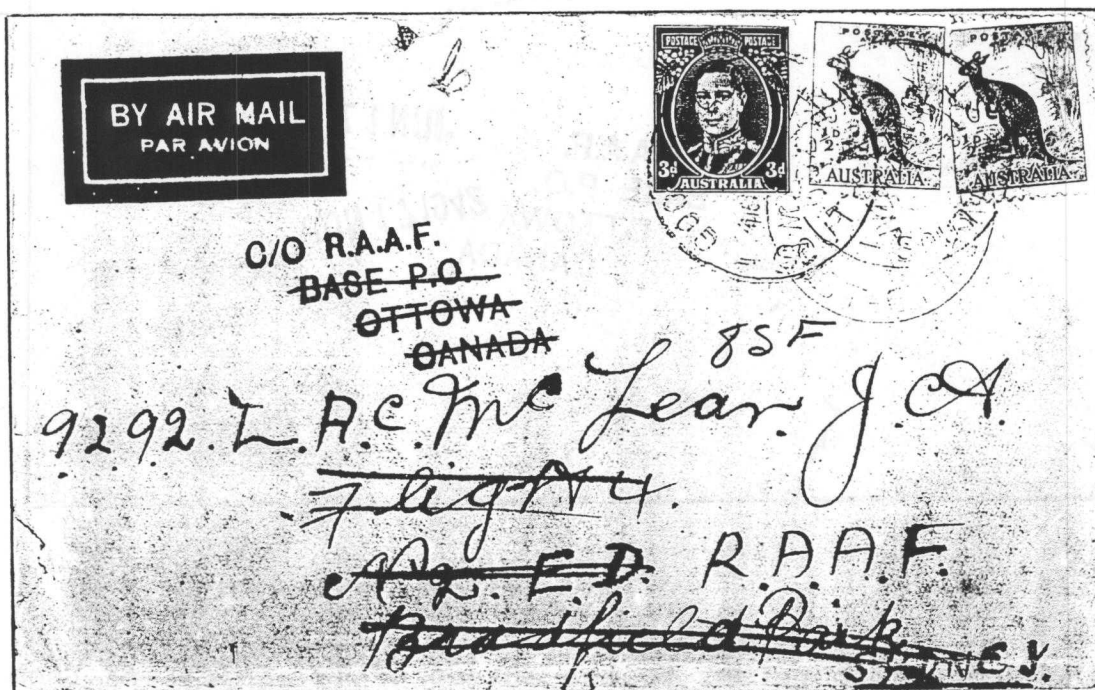 BY AIR MAIL
PAR AVION
POSTAGE POSTAGE
3d 3d
AUSTRALIA
POSTAGE
½
D
AUSTRALIA
POSTAGE
AUSTRALIA
C/O R.A.A.F.
BASE P.O.
OTTOWA
CANADA
8SF
9292. L.A.C. Mc Lean J.A.
Flight 4.
No 2. E.D. R.A.A.F.
Bradfield Park
SYDNEY.